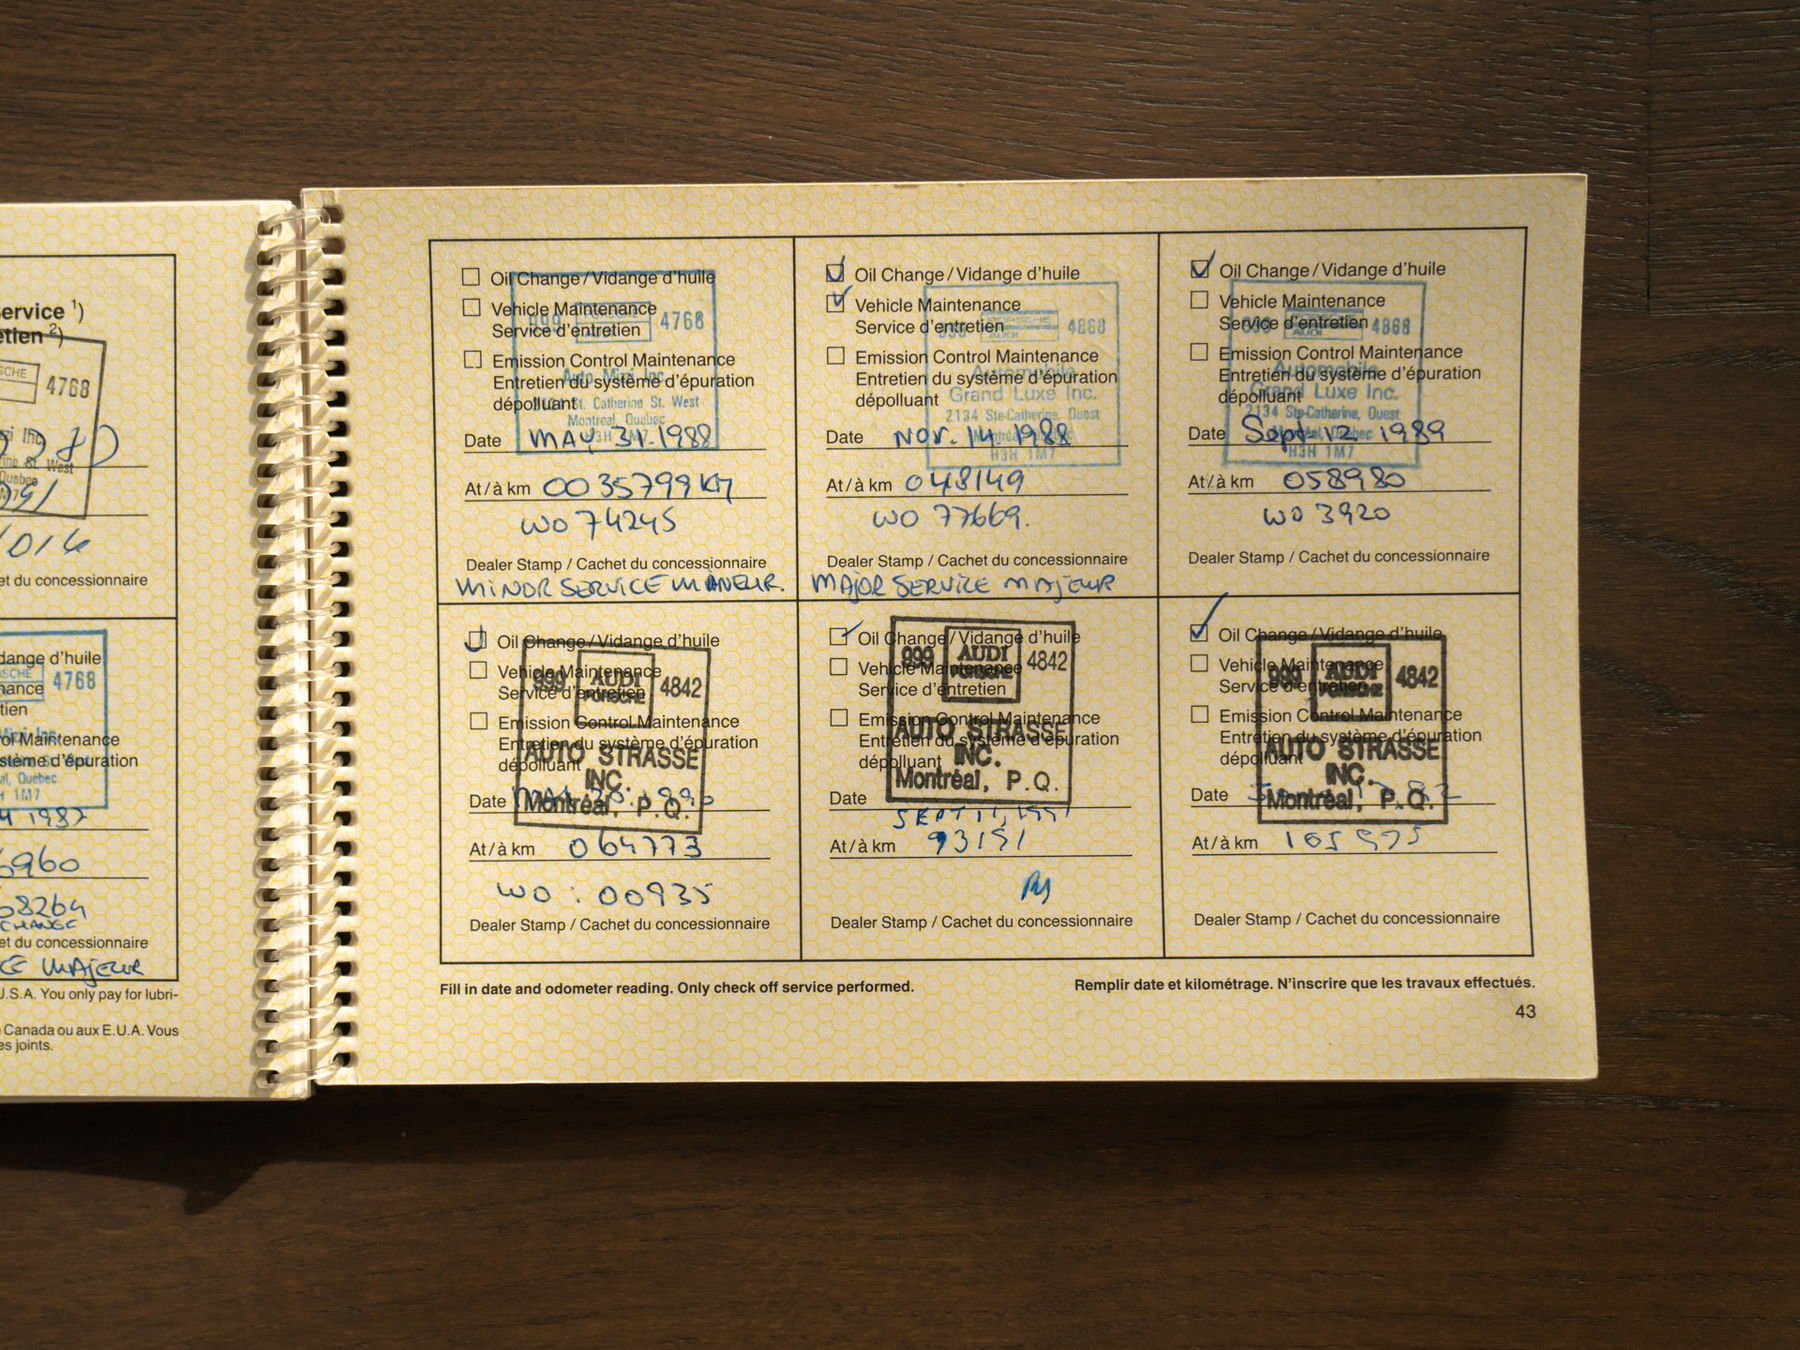 ervice ¹)
etien ²)
SCHE
4768
et du concessionnaire
dange d'huile
nance
4768
tien
ol Maintenance
stème d'épuration
al, Quebec
H 1M7
1987
6960
68264
CHANGE
et du concessionnaire
CE MAJEUR
J.S.A. You only pay for lubri-
Canada ou aux E.U.A. Vous
es joints.
Oil Change / Vidange d'huile
Vehicle Maintenance
Service d'entretien
999 PORSCHE 4768
Emission Control Maintenance
Entretien du système d'épuration
dépolluant
Auto Mini Inc.
St. Catherine St. West
Montreal, Quebec
H3H 1M7
Date MAY 31.1988
At / à km 0035799 KM
WO 74245
Dealer Stamp / Cachet du concessionnaire
MINOR SERVICE
Oil Change / Vidange d'huile
Vehicle Maintenance
Service d'entretien
PORSCHE AUDI 4868
Emission Control Maintenance
Entretien du système d'épuration
dépolluant
Automobile
Grand Luxe Inc.
2134 Ste-Catherine, Ouest
H3H 1M7
Date NOV. 14. 1988
At / à km 048149
WO 77669.
Dealer Stamp / Cachet du concessionnaire
MAJOR SERVICE MAJEUR
Oil Change / Vidange d'huile
Vehicle Maintenance
Service d'entretien
AUDI 4868
Emission Control Maintenance
Entretien du système d'épuration
dépolluant
Automobile
Grand Luxe Inc.
2134 Ste-Catherine, Ouest
Montréal, Quebec
H3H 1M7
Date Sept. 12 1989
At / à km 058980
WO 3920
Dealer Stamp / Cachet du concessionnaire
Oil Change / Vidange d'huile
Vehicle Maintenance
Service d'entretien
999 AUDI PORSCHE 4842
Emission Control Maintenance
Entretien du système d'épuration
dépolluant
AUTO STRASSE
INC.
Montréal, P.Q.
Date 1990
At / à km 064773
WO : 00935
Dealer Stamp / Cachet du concessionnaire
Oil Change / Vidange d'huile
Vehicle Maintenance
Service d'entretien
999 AUDI PORSCHE 4842
Emission Control Maintenance
Entretien du système d'épuration
dépolluant
AUTO STRASSE
INC.
Montréal, P.Q.
Date SEPT 11, 1991
At / à km 93151
Dealer Stamp / Cachet du concessionnaire
Oil Change / Vidange d'huile
Vehicle Maintenance
Service d'entretien
999 AUDI PORSCHE 4842
Emission Control Maintenance
Entretien du système d'épuration
dépolluant
AUTO STRASSE
INC.
Montréal, P.Q.
Date
At / à km
Dealer Stamp / Cachet du concessionnaire
Fill in date and odometer reading. Only check off service performed.
Remplir date et kilométrage. N'inscrire que les travaux effectués.
43